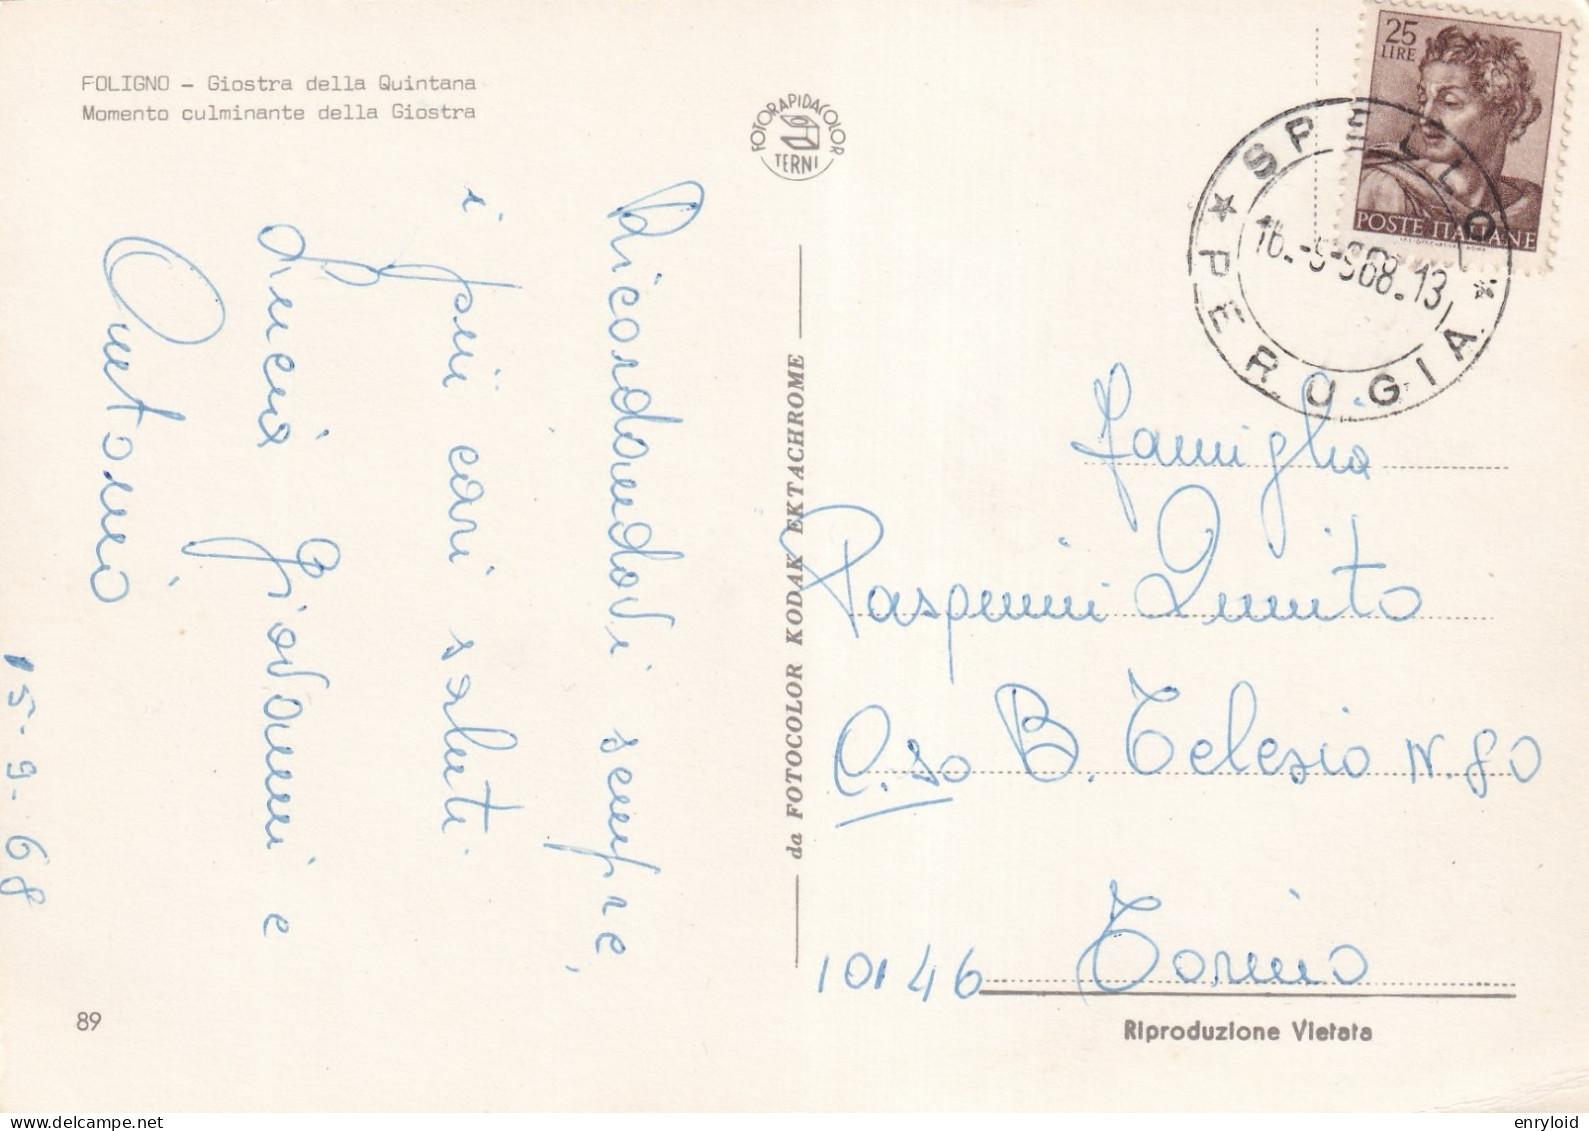 FOLIGNO - Giostra della Quintana
Momento culminante della Giostra
FOTORAPIDACOLOR
TERNI
25
LIRE
POSTE ITALIANE
SPELLO
PERUGIA
16.-9-968.13
Ricordandovi sempre,
i più cari saluti
Lucia Giovanni e
Antonio
15-9-68
da FOTOCOLOR KODAK EKTACHROME
Famiglia
Pasquini Quinto
C.so B. Telesio N. 80
10146 Torino
89
Riproduzione Vietata
enryloid